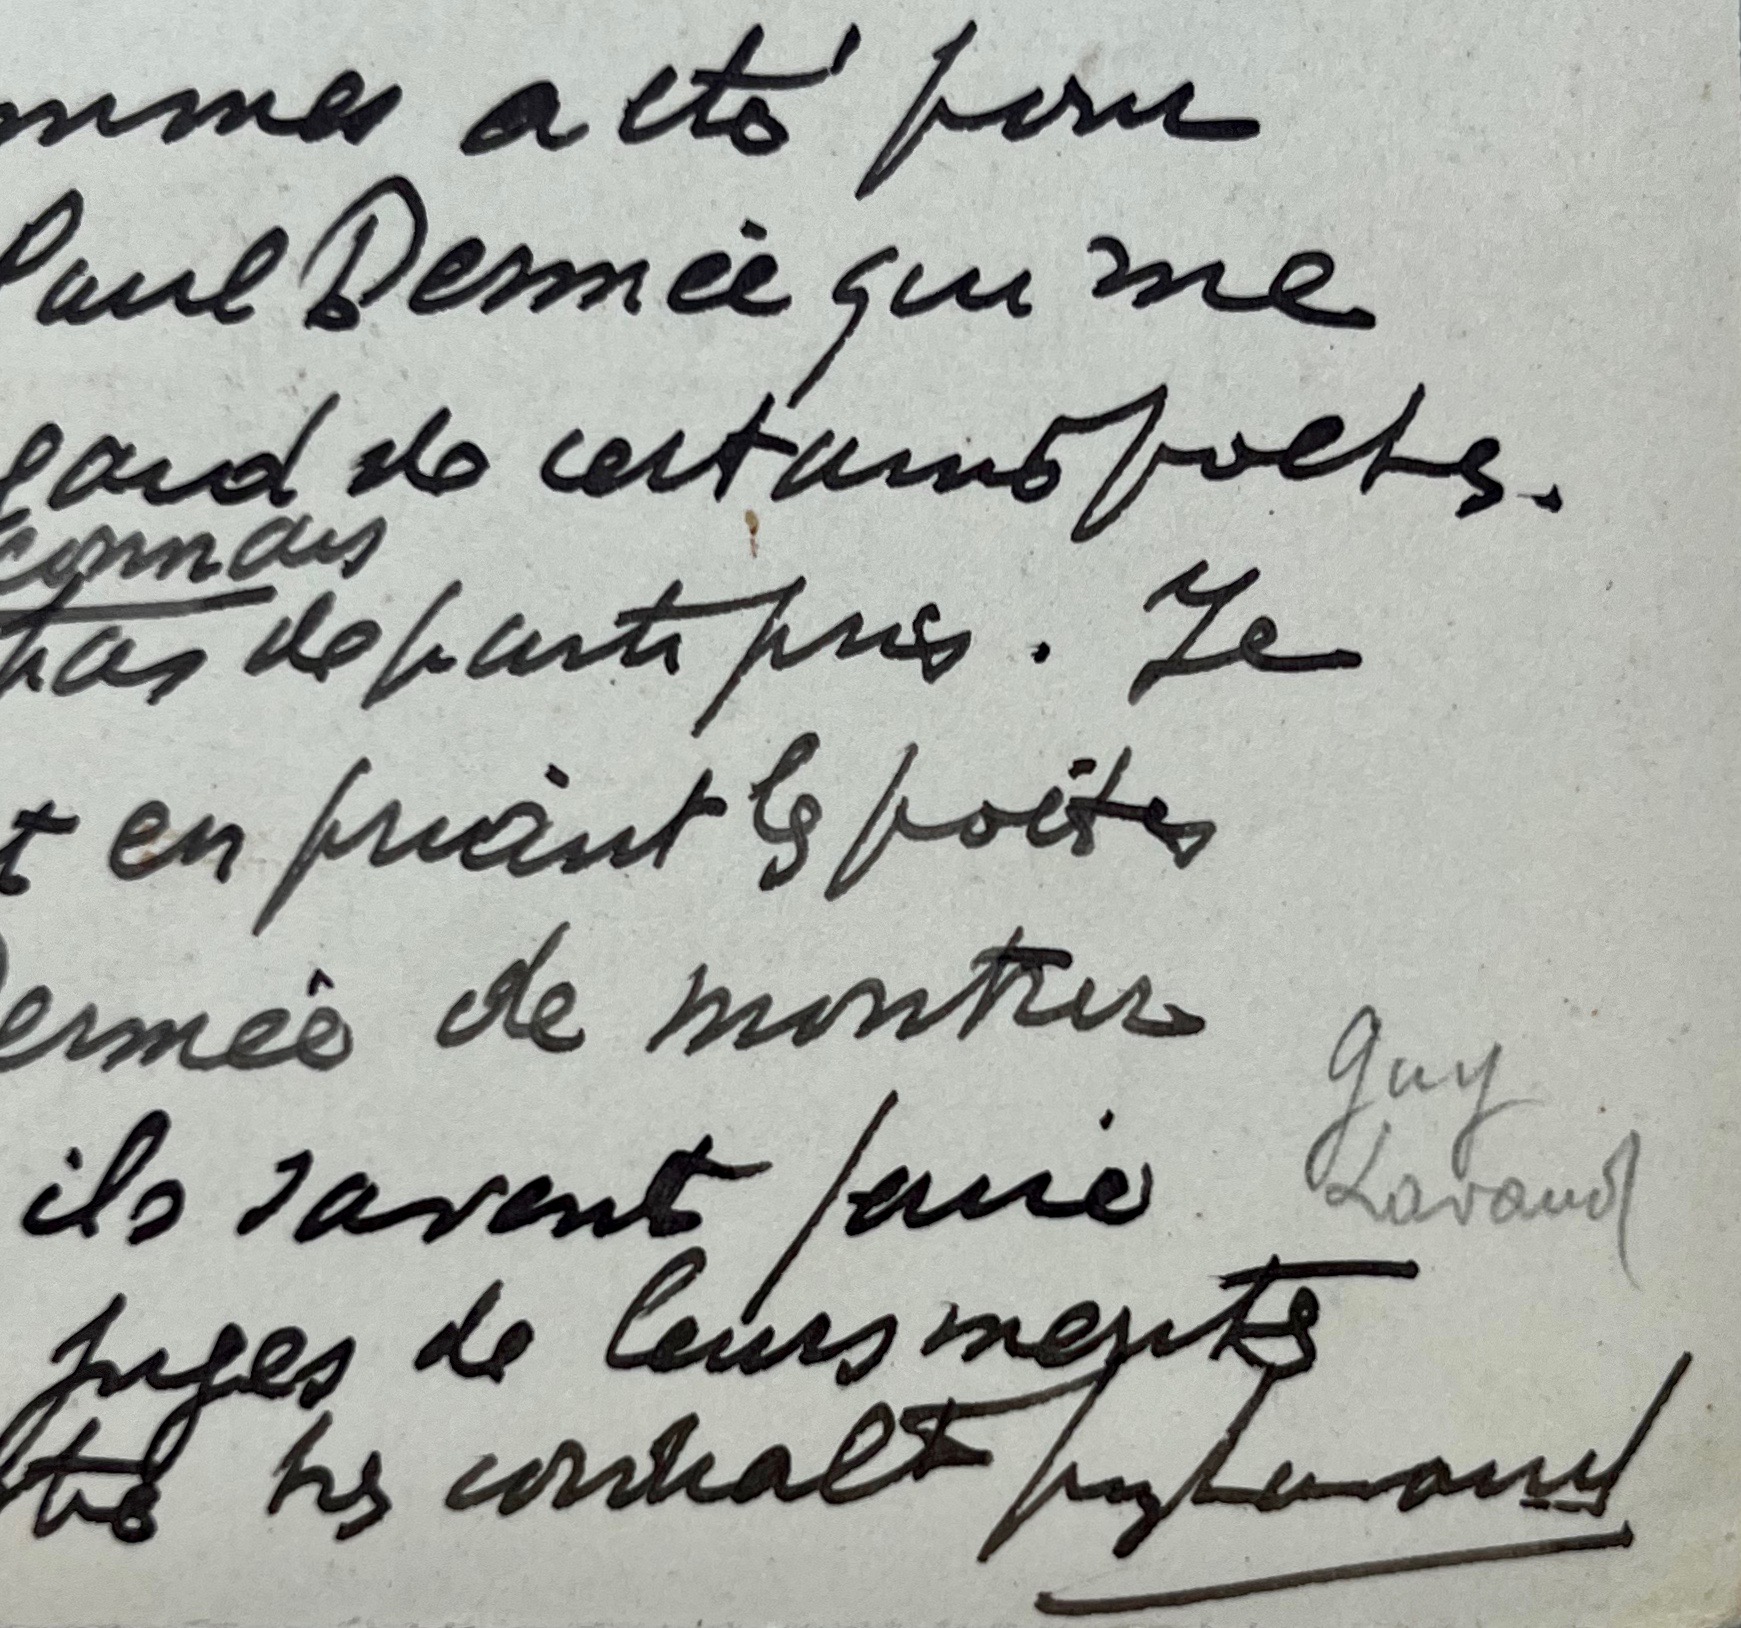 mmes a été pour
Paul Dermée qui me
egard de certains poètes.
connais
pas de parti pris. Je
t en priant les poètes
Dermée de montrer
ils savent faire
juges de leurs mérites
très cordialt Guy Lavaud
Guy
Lavaud